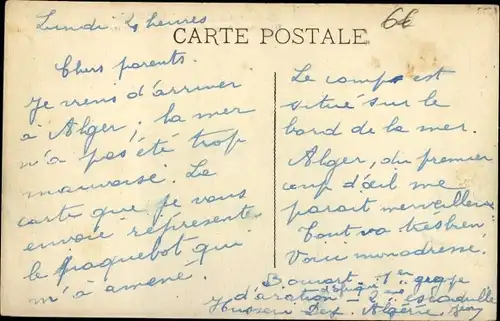 Lundi 4 heures
6€
CARTE POSTALE
Chers parents.
Je viens d'arriver
à Alger, la mer
n'a pas été trop
mauvaise. La
carte que je vous
envoie représente
le paquebot qui
m'a amené.
Le camp est
situé sur le
bord de la mer.
Alger, du premier
coup d'œil me
parait merveilleux
Tout va très bien.
Voici mon adresse.
1er
d'aviation - 2 escadrille
Hussein Dey Algérie